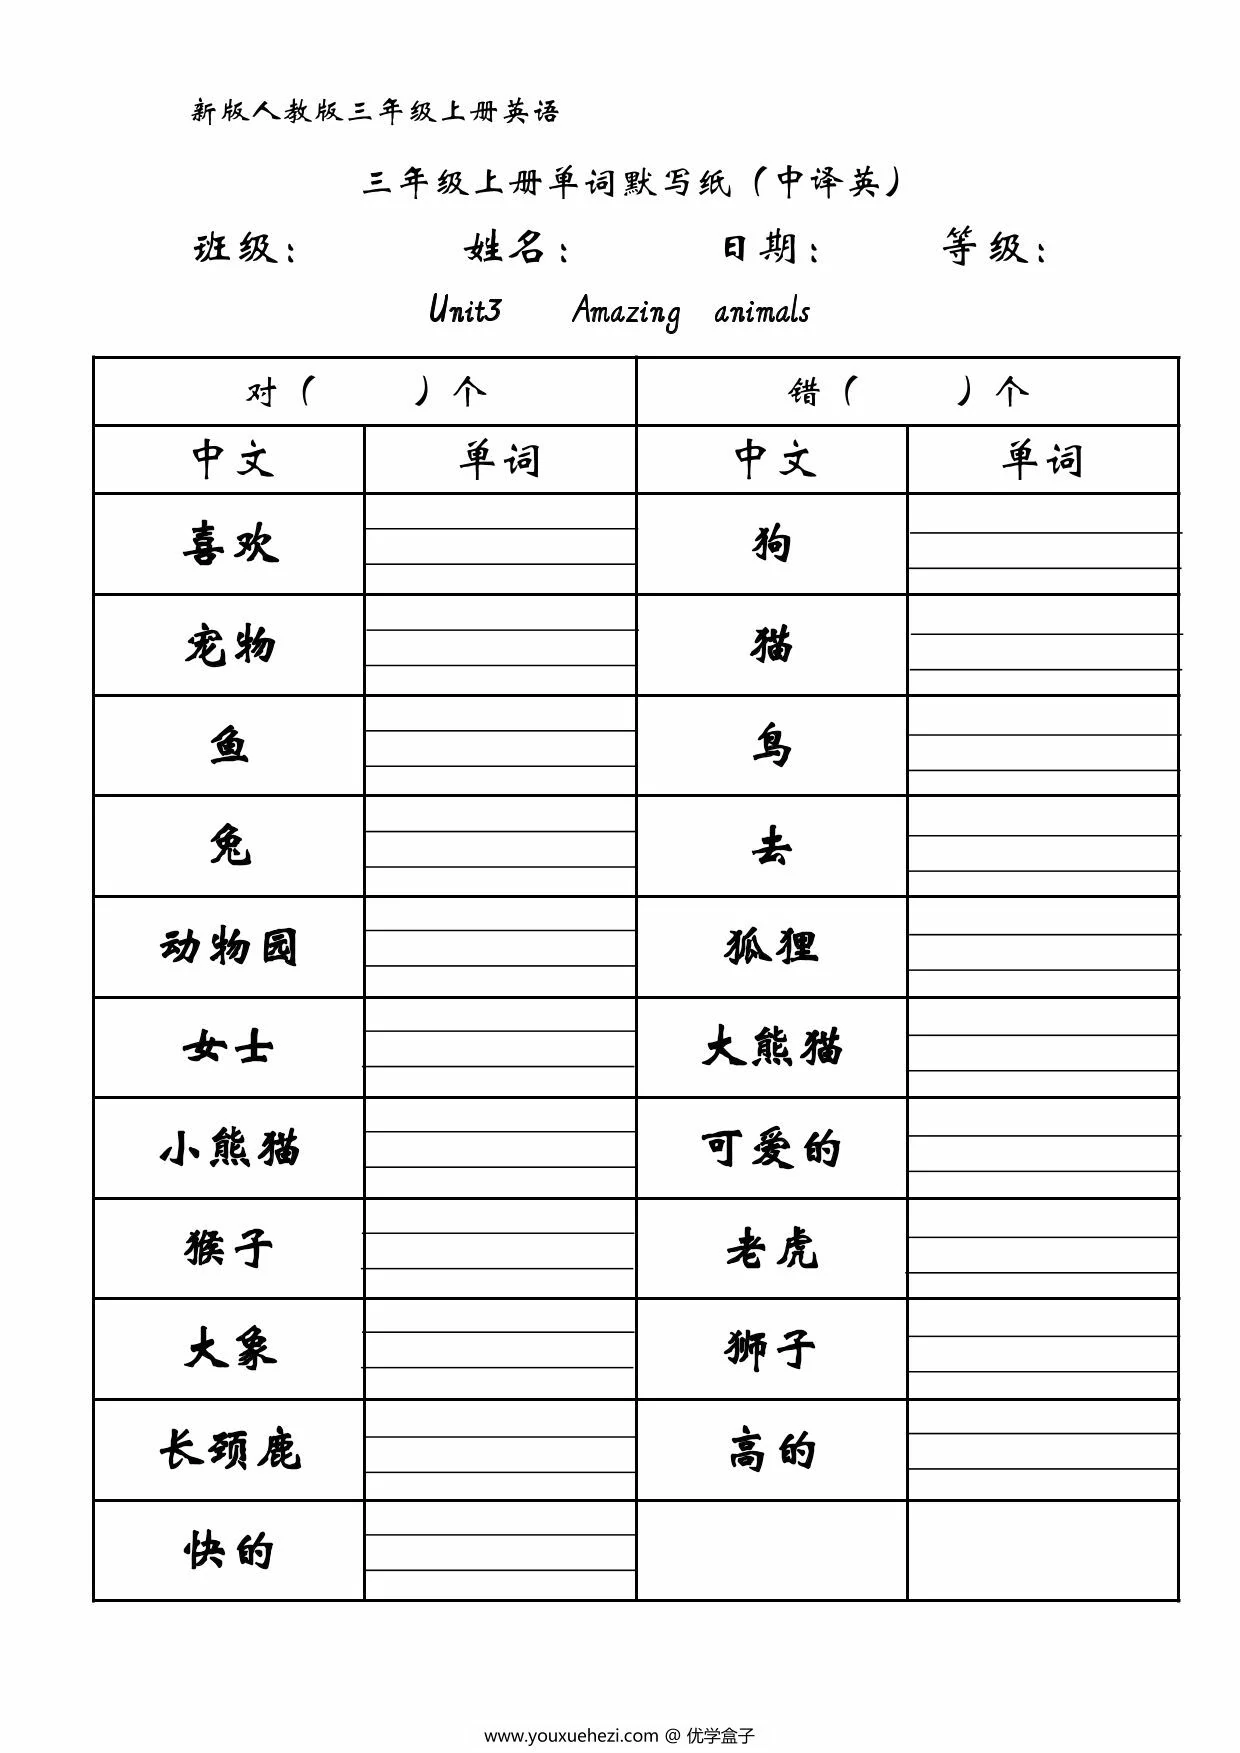 新版人教版三年级上册英语
三年级上册单词默写纸（中译英）
班级： 姓名： 日期： 等级：
Unit3 Amazing animals
对（ ）个 错（ ）个
中文 单词 中文 单词
喜欢 狗
宠物 猫
鱼 鸟
兔 去
动物园 狐狸
女士 大熊猫
小熊猫 可爱的
猴子 老虎
大象 狮子
长颈鹿 高的
快的
www.youxuehezi.com @ 优学盒子